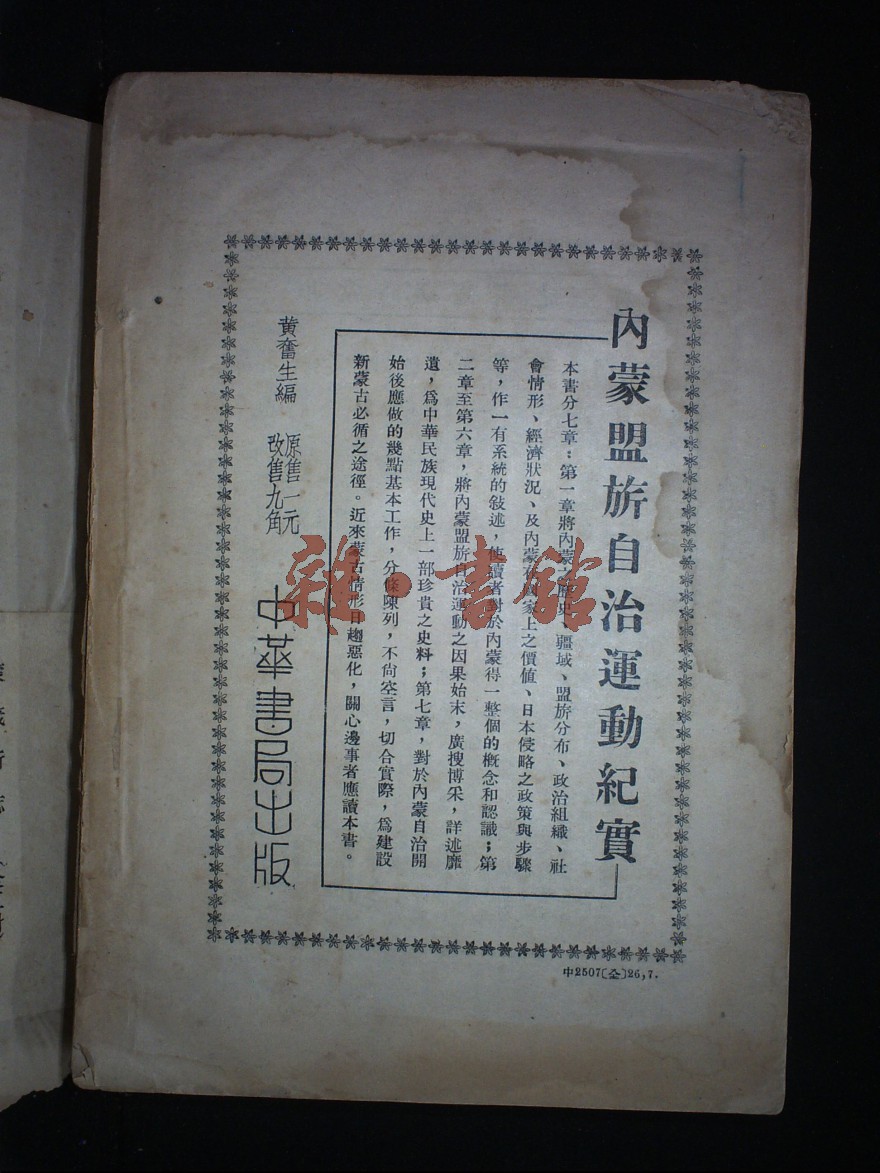 內蒙盟旂自治運動紀實
本書分七章：第一章將內蒙之歷史、疆域、盟旂分布、政治組織、社
會情形、經濟狀況、及內蒙在國家上之價值、日本侵略之政策與步驟
等，作一有系統的敍述，使讀者對於內蒙得一整個的概念和認識；第
二章至第六章，將內蒙盟旂自治運動之因果始末，廣搜博采，詳述靡
遺，爲中華民族現代史上一部珍貴之史料；第七章，對於內蒙自治開
始後應做的幾點基本工作，分條陳列，不尙空言，切合實際，爲建設
新蒙古必循之途徑。近來蒙古情形日趨惡化，關心邊事者應讀本書。
黃奮生編
原售一元
改售九角
中華書局出版
中2507(仝)26,7.
雜·書館